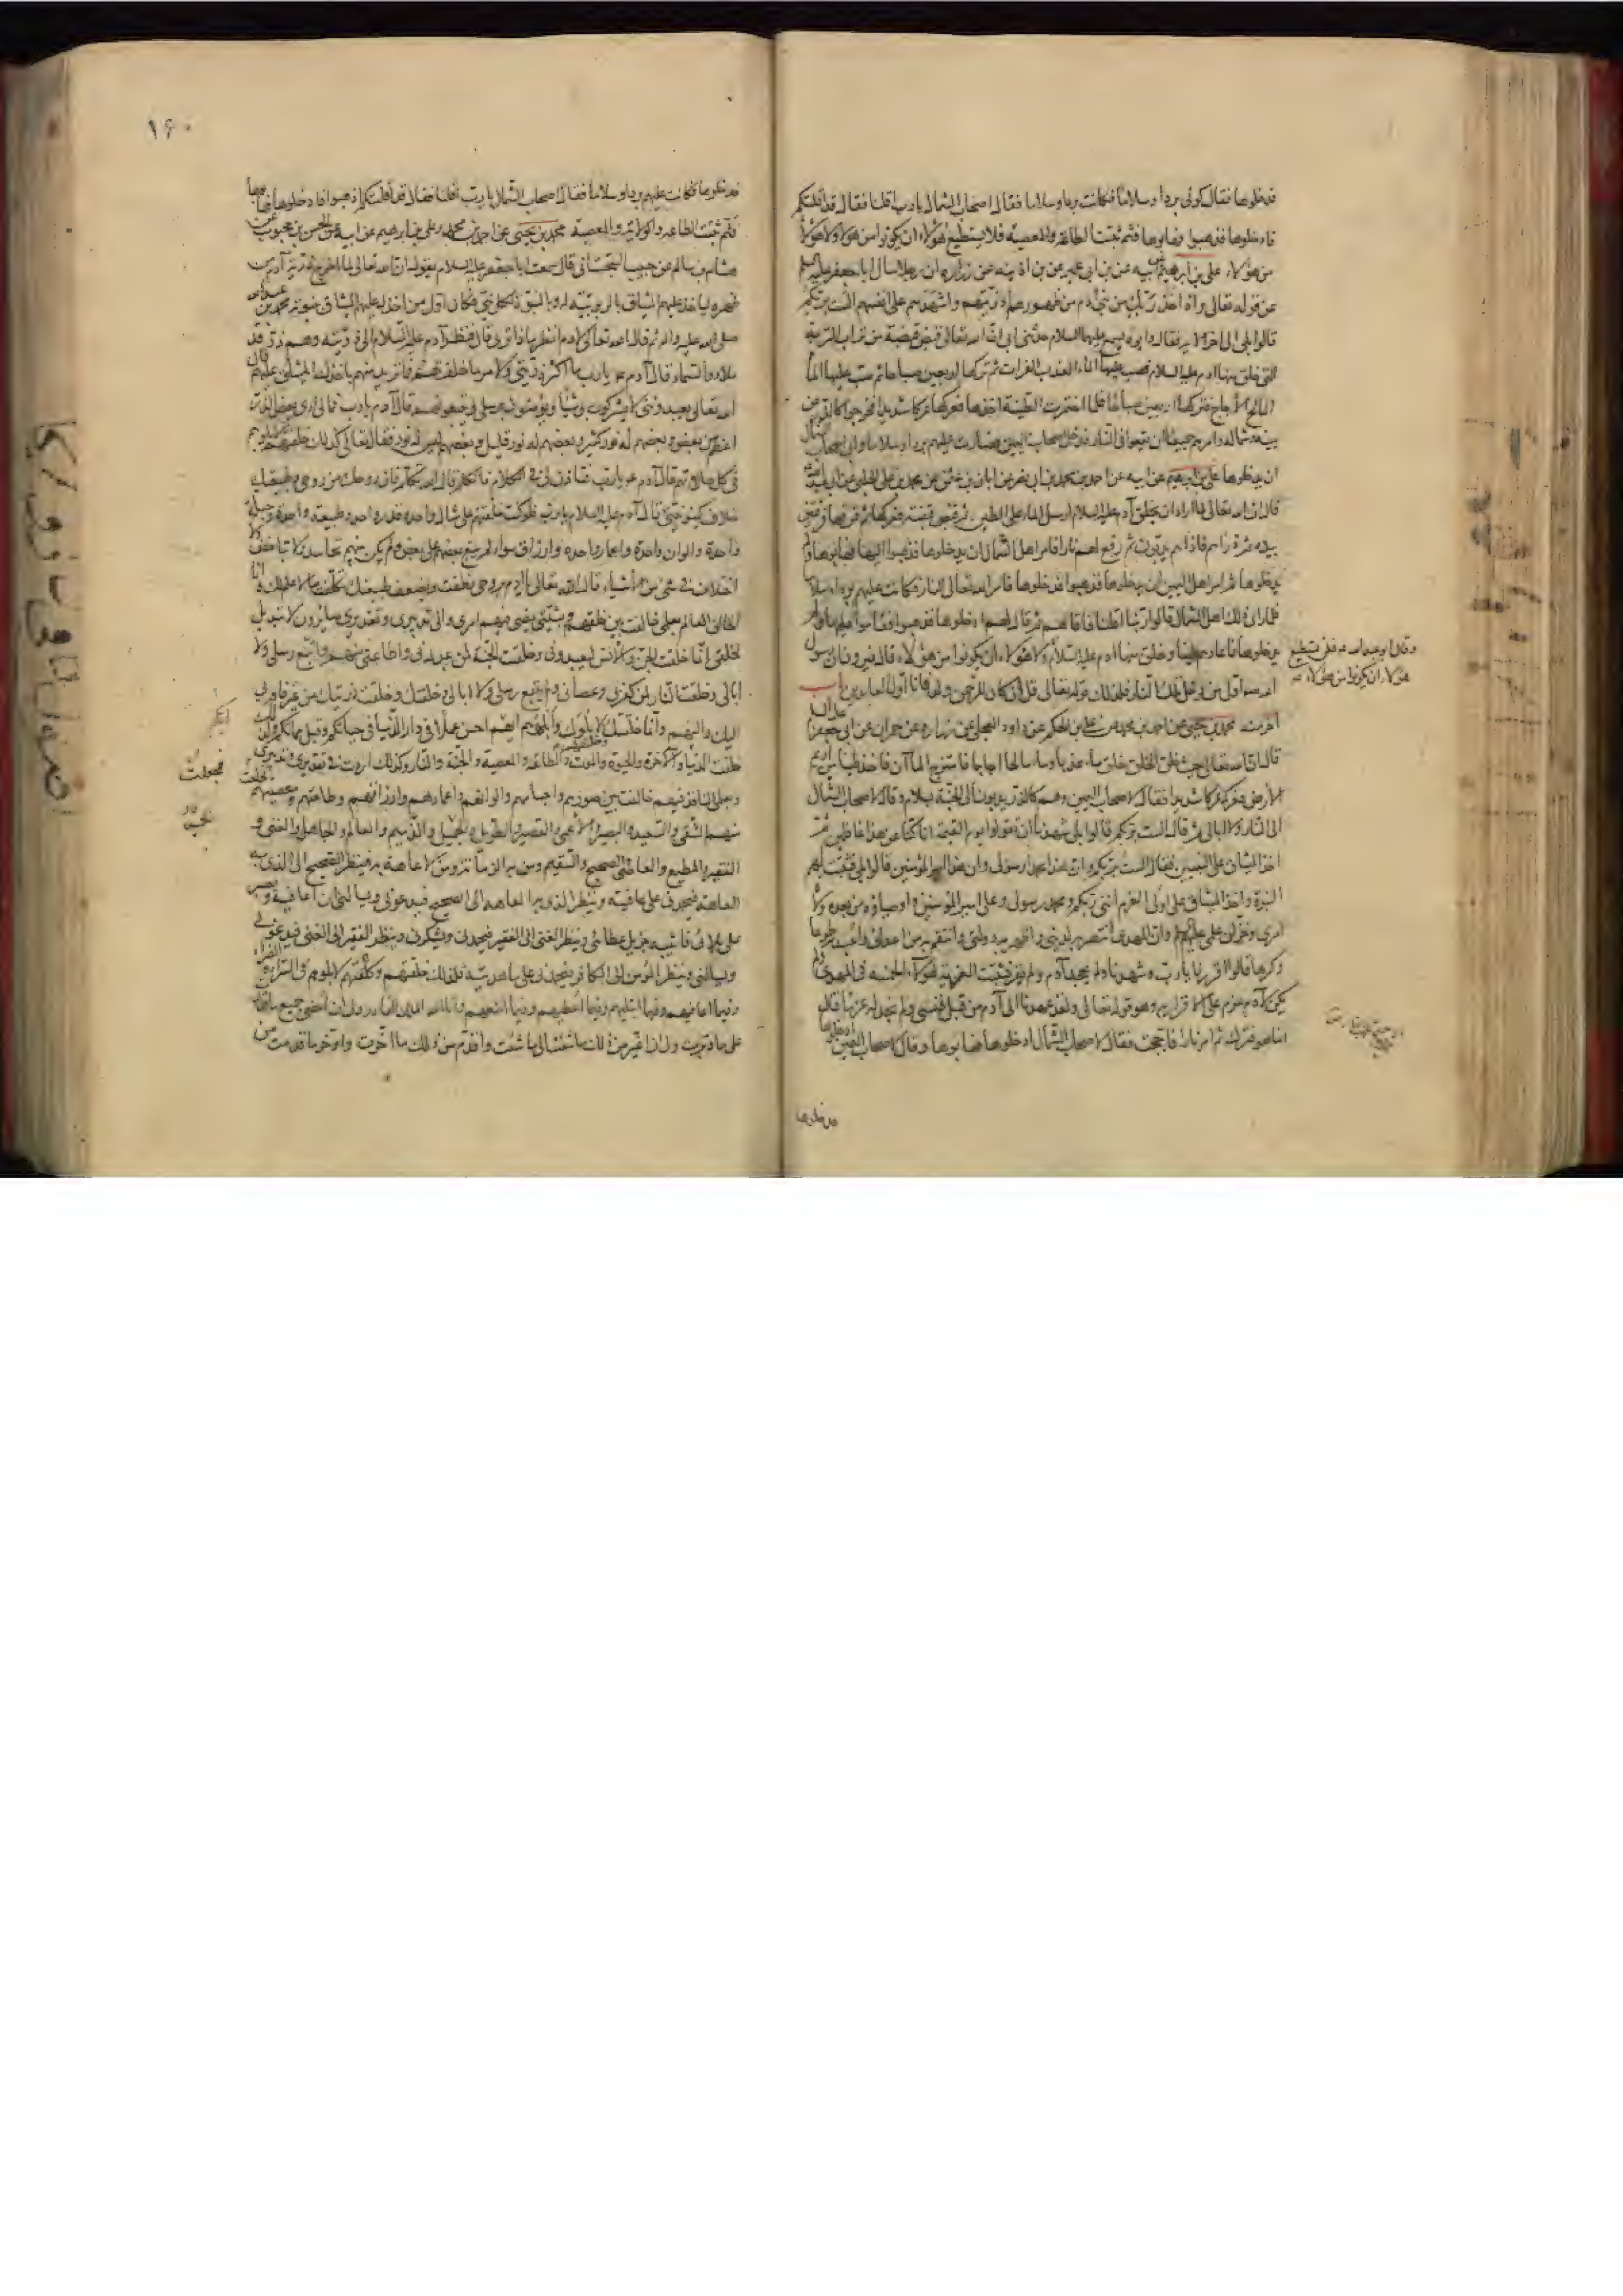 فدخلوها فقال كوني بردا وسلاما فكانت بردا وسلاما فقال اصحاب الشمال يا رب اقلنا فقال قد اقلتكم
فادخلوها فذهبوا فهابوها فثم ثبتت الطاعة والمعصية فلا يستطيع هؤلاء ان يكونوا من هؤلاء ولا هؤلاء
من هؤلاء علي بن ابرهيم عن ابيه عن بن ابي عمير عن بن اذينه عن زراره ان رجلا سال ابا جعفر عليه السلم
عن قوله تعالى واذ اخذ ربك من بني ادم من ظهورهم ذريتهم واشهدهم على انفسهم الست بربكم
قالوا بلى الى اخر الايه فقال وابوه يسمع عليهما السلام حدثني ابي ان الله تعالى قبض قبضة من تراب التربة
التي خلق منها ادم عليه السلام فصب عليها الماء العذب الفرات ثم تركها اربعين صباحا ثم صب عليها الماء
المالح الاجاج فتركها اربعين صباحا فلما اختمرت الطينة اخذها فعركها عركا شديدا فخرجوا كالذر من
يمينه وشماله وامرهم جميعا ان يقعوا في النار فدخل اصحاب اليمين فصارت عليهم بردا وسلاما وابى اصحاب الشمال
ان يدخلوها علي بن ابرهيم عن ابيه عن احمد بن محمد بن ابي نصر عن ابان بن عثمن عن محمد بن علي الحلبي عن ابي عبد الله
قال ان الله تعالى لما اراد ان يخلق آدم عليه السلام ارسل الماء على الطين ثم قبض قبضة فعركها ثم فرقها فرقتين
بيده ثم ذراهم فاذا هم يدبون ثم رفع لهم نارا فامر اهل الشمال ان يدخلوها فذهبوا اليها فهابوها ولم
يدخلوها ثم امر اهل اليمين ان يدخلوها فذهبوا فدخلوها فامر الله تعالى النار فكانت عليهم بردا وسلاما
فلما راى ذلك اهل الشمال قالوا ربنا اقلنا فاقالهم ثم قال لهم ادخلوها فذهبوا فقاموا عليها ولم
يدخلوها فاعادهم طينا وخلق منها ادم عليه السلام
وقال ابو عبد الله ع فلن يستطيع
هؤلاء ان يكونوا من هؤلاء
ولا هؤلاء ان يكونوا من هؤلاء قال فيرون ان رسول
الله ص اول من دخل تلك النار فلذلك قوله تعالى قل ان كان للرحمن ولد فانا اول العابدين باب
آخر منه محمد بن يحيى عن احمد بن محمد عن علي بن الحكم عن داود العجلي عن زراره عن حمران عن ابي جعفر
قال ان الله تعالى حيث خلق الخلق خلق ماء عذبا وماء مالحا اجاجا فامتزج الماآن فاخذ طينا من اديم
الارض فعركه عركا شديدا فقال لاصحاب اليمين وهم كالذر يدبون الى الجنة بسلام وقال لاصحاب الشمال
الى النار ولا ابالي ثم قال الست بربكم قالوا بلى شهدنا ان تقولوا يوم القيمة انا كنا عن هذا غافلين ثم
اخذ الميثاق على النبيين فقال الست بربكم وان هذا محمد رسولي وان هذا علي امير المؤمنين قالوا بلى فثبتت لهم
النبوة واخذ الميثاق على اولي العزم انني ربكم ومحمد رسولي وعلي امير المؤمنين واوصياؤه من بعده ولاة
امري وخزان علمي وان المهدي انتصر به لديني واظهر به دولتي وانتقم به من اعدائي واعبد به طوعا
وكرها قالوا اقررنا يا رب وشهدنا ولم يجحد آدم ولم يقر فثبتت العزيمة لهؤلاء الخمسه في المهدي ولم
يكن لآدم عزم على الاقرار به وهو قوله تعالى ولقد عهدنا الى آدم من قبل فنسي ولم نجد له عزما قال
انما هو فترك ثم امر نارا فاججت فقال لاصحاب الشمال ادخلوها فهابوها وقال لاصحاب اليمين ادخلوها
فدخلوها
١٦٠
فدخلوها فكانت عليهم بردا وسلاما فقال اصحاب الشمال يا رب اقلنا فقال قد اقلتكم اذهبوا فادخلوها فهابوها
فثم ثبتت الطاعه والولاية والمعصية محمد بن يحيى عن احمد بن محمد وعلي بن ابرهيم عن ابيه عن الحسن بن محبوب عن
هشام بن سالم عن حبيب السجستاني قال سمعت ابا جعفر عليه السلام يقول ان الله تعالى لما اخرج ذرية آدم من
ظهره لياخذ عليهم الميثاق بالربوبية له وبالنبوة لكل نبي فكان اول من اخذ له عليهم الميثاق بنبوته محمد بن عبد الله
صلى الله عليه وآله ثم قال الله تعالى لادم انظر ماذا ترى قال فنظر آدم عليه السلام الى ذريته وهم ذر قد
ملاوا السماء قال آدم ع يا رب ما اكثر ذريتي ولامر ما خلقتهم فما تريد منهم باخذك الميثاق عليهم قال
الله تعالى يعبدونني لا يشركون بي شيئا ويؤمنون برسلي ويتبعونهم قال آدم يا رب فما لي ارى بعض الذر
اعظم من بعض وبعضهم له نور كثير وبعضهم له نور قليل وبعضهم ليس له نور فقال تعالى كذلك خلقتهم لابلوهم
في كل حالاتهم قال آدم ع يا رب فتاذن لي في الكلام فاتكلم قال الله تكلم فان روحك من روحي وطبيعتك
خلاف كينونتي قال آدم عليه السلام يا رب فلو كنت خلقتهم على مثال واحد وقدر واحد وطبيعة واحدة وجبلة
واحدة والوان واحدة واعمار واحده وارزاق سواء لم يبغ بعضهم على بعض ولم يكن بينهم تحاسد ولا تباغض ولا
اختلاف في شيء من الاشياء قال الله تعالى يا آدم بروحي نطقت وبضعف طبيعتك تكلفت ما لا علم لك به وانا
الخالق العالم بعلمي خالفت بين خلقهم بمشيتي يمضي فيهم امري والى تدبيري وتقديري صائرون لا تبديل
لخلقي انما خلقت الجن والانس ليعبدوني وخلقت الجنة لمن عبدني واطاعني منهم واتبع رسلي ولا
ابالي وخلقت النار لمن كفر بي وعصاني ولم يتبع رسلي ولا ابالي وخلقتك وخلقت ذريتك من غير فاقة بي
اليك واليهم وانما خلقتك لابلوك وابلوهم ايهم احسن عملا في دار الدنيا في حياتكم وقبل مماتكم ولذلك
خلقت الدنيا والآخرة والحيوة والموت والطاعة والمعصية والجنة والنار وكذلك اردت في تقديري وتدبيري
وبعلمي النافذ فيهم خالفت بين صورهم واجسامهم والوانهم واعمارهم وارزاقهم وطاعتهم ومعصيتهم
فجعلت
منهم الشقي والسعيد والبصير والاعمى والقصير والطويل والجميل والذميم والعالم والجاهل والغني و
الفقير والمطيع والعاصي والصحيح والسقيم ومن به الزمانة ومن لا عاهة به فينظر الصحيح الى الذي به
العاهة فيحمدني على عافيته وينظر الذي به العاهه الى الصحيح فيدعوني ويسالني ان اعافيه ويصبر
على بلائي فاثيبه جزيل عطائي وينظر الغني الى الفقير فيحمدني ويشكرني وينظر الفقير الى الغني فيدعوني
ويسالني وينظر المؤمن الى الكافر فيحمدني على ما هديته فلذلك خلقتهم وكلفتهم لابلوهم في السراء والضراء
وفيما اعافيهم وفيما ابتليهم وفيما اعطيهم وفيما امنعهم وانا الله الملك القادر ولي ان امضي جميع ما قدرت
على ما دبرت ولي ان اغير من ذلك ما شئت الى ما شئت واقدم من ذلك ما اخرت واؤخر ما قدمت من